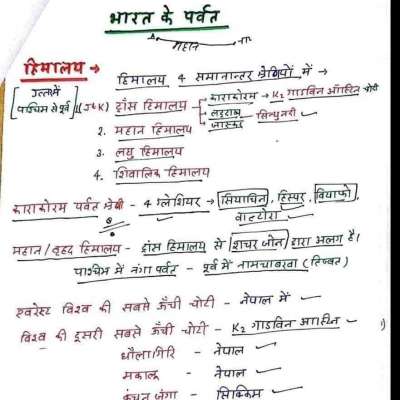 भारत के पर्वत
महान
हिमालय → हिमालय 4 समानान्तर श्रेणियों में →
[उत्तर में पश्चिम से पूर्व] 1. (J&K) ट्रांस हिमालय - काराकोरम → K2 गाडविन ऑस्टिन चोटी
लद्दाख → सिन्धु नदी
जास्कर
2. महान हिमालय
3. लघु हिमालय
4. शिवालिक हिमालय
काराकोरम पर्वत श्रेणी - 4 ग्लेशियर → सियाचिन, हिस्पर, बियाफो,
वाल्टोरा
महान/वृहद हिमालय - ट्रांस हिमालय से शचर जोन द्वारा अलग है।
पश्चिम में नंगा पर्वत - पूर्व में नामचाबरवा (तिब्बत)
एवरेस्ट विश्व की सबसे ऊँची चोटी - नेपाल में
विश्व की दूसरी सबसे ऊँची चोटी - K2 गाडविन ऑस्टिन
धौलागिरि - नेपाल
मकालू - नेपाल
कंचन जंगा - सिक्किम